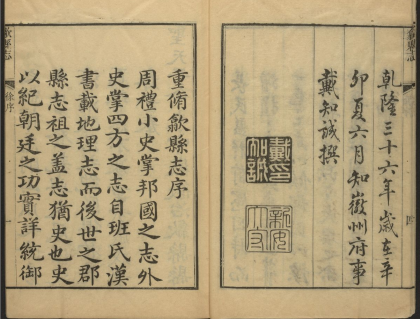 歙縣志
乾隆三十六年歲在辛
卯夏六月知徽州府事
戴知誠撰
戴印知誠
重脩歙縣志序
周禮小史掌邦國之志外
史掌四方之志自班氏漢
書載地理志而後世之郡
縣志祖之蓋志猶史也史
以紀朝廷之功實詳統御
歙縣志
徐序
一